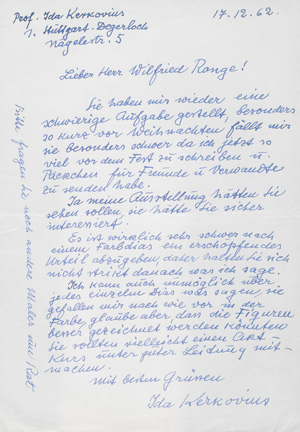 Prof. Ida Kerkovius
17.12.62.
7. Stuttgart-Degerloch
Nägelestr. 5
Lieber Herr Wilfried Range!
Sie haben mir wieder eine
schwierige Aufgabe gestellt, besonders
so kurz vor Weihnachten fällt mir
sie besonders schwer da ich jetzt so
viel vor dem Fest zu schreiben u.
Päckchen für Freunde u Verwandte
zu senden habe.
Ja meine Ausstellung hätten Sie
sehen sollen, sie hätte Sie sicher
interessiert.
Es ist wirklich sehr schwer nach
einem Farbdias ein erschöpfendes
Urteil abzugeben, daher halten Sie sich
nicht strikt danach was ich sage.
Ich kann auch unmöglich über
jedes einzelne Dias was sagen, sie
gefallen mir nach wie vor in der
Farbe, glaube aber, dass die Figuren
besser gezeichnet werden könnten
Sie sollten vielleicht einen Akt-
Kurs unter guter Leitung mit-
machen.
Mit besten Grüssen
Ida Kerkovius
Bitte fragen Sie noch andere Maler um Rat